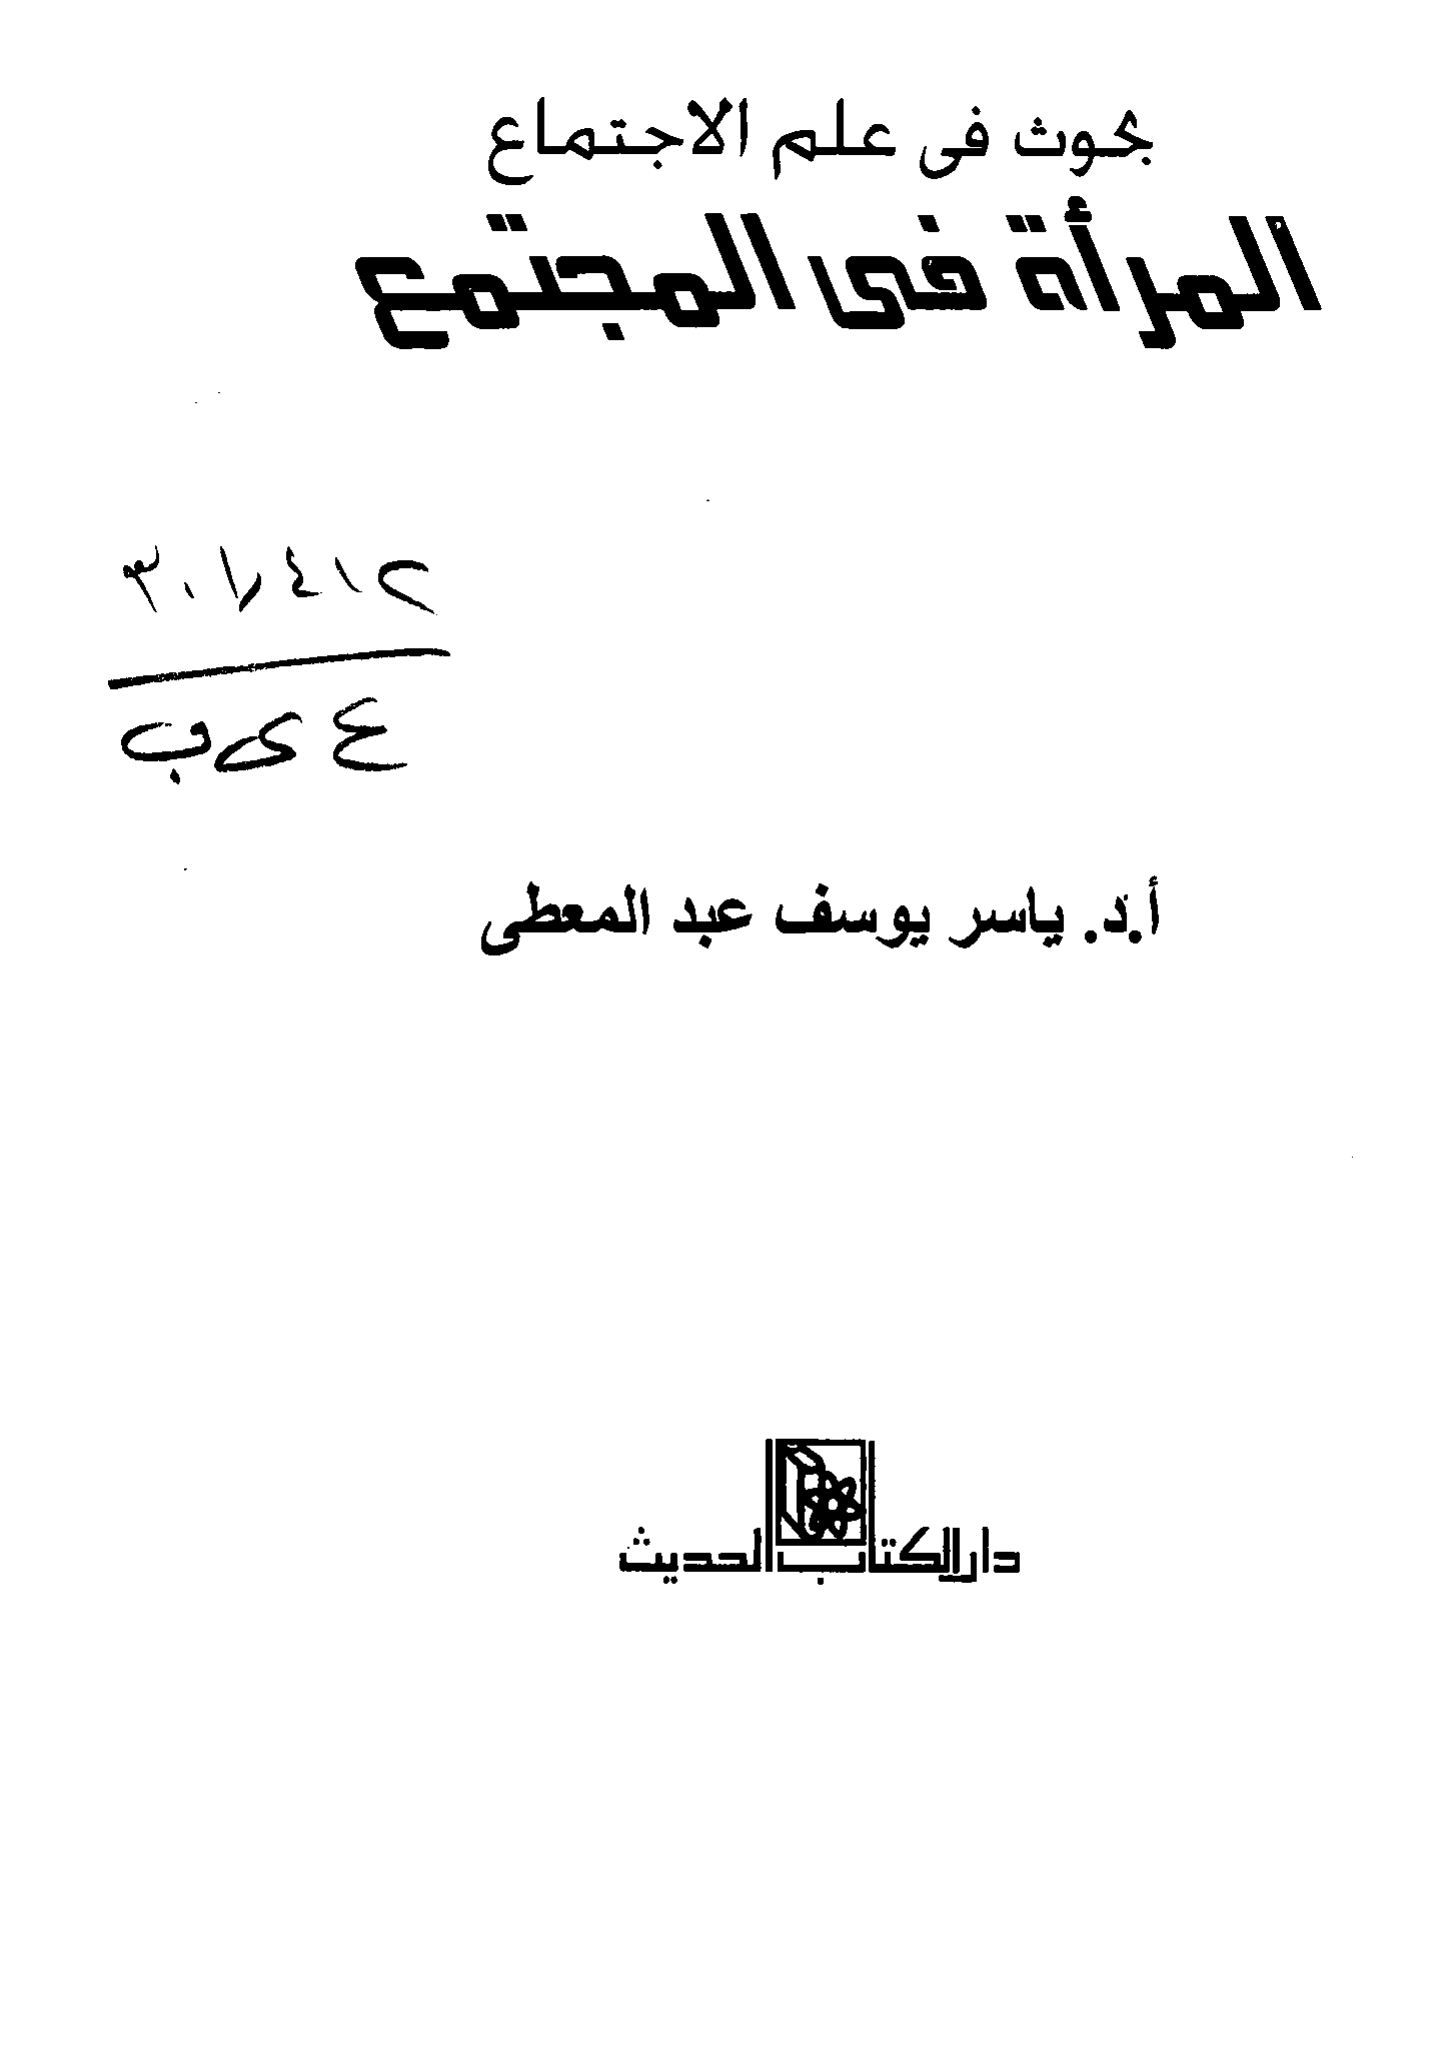 بحوث فى علم الاجتماع
المرأة فى المجتمع
٣٠١٫٤١٢
ع ى ب
أ.د. ياسر يوسف عبد المعطى
دار الكتاب الحديث